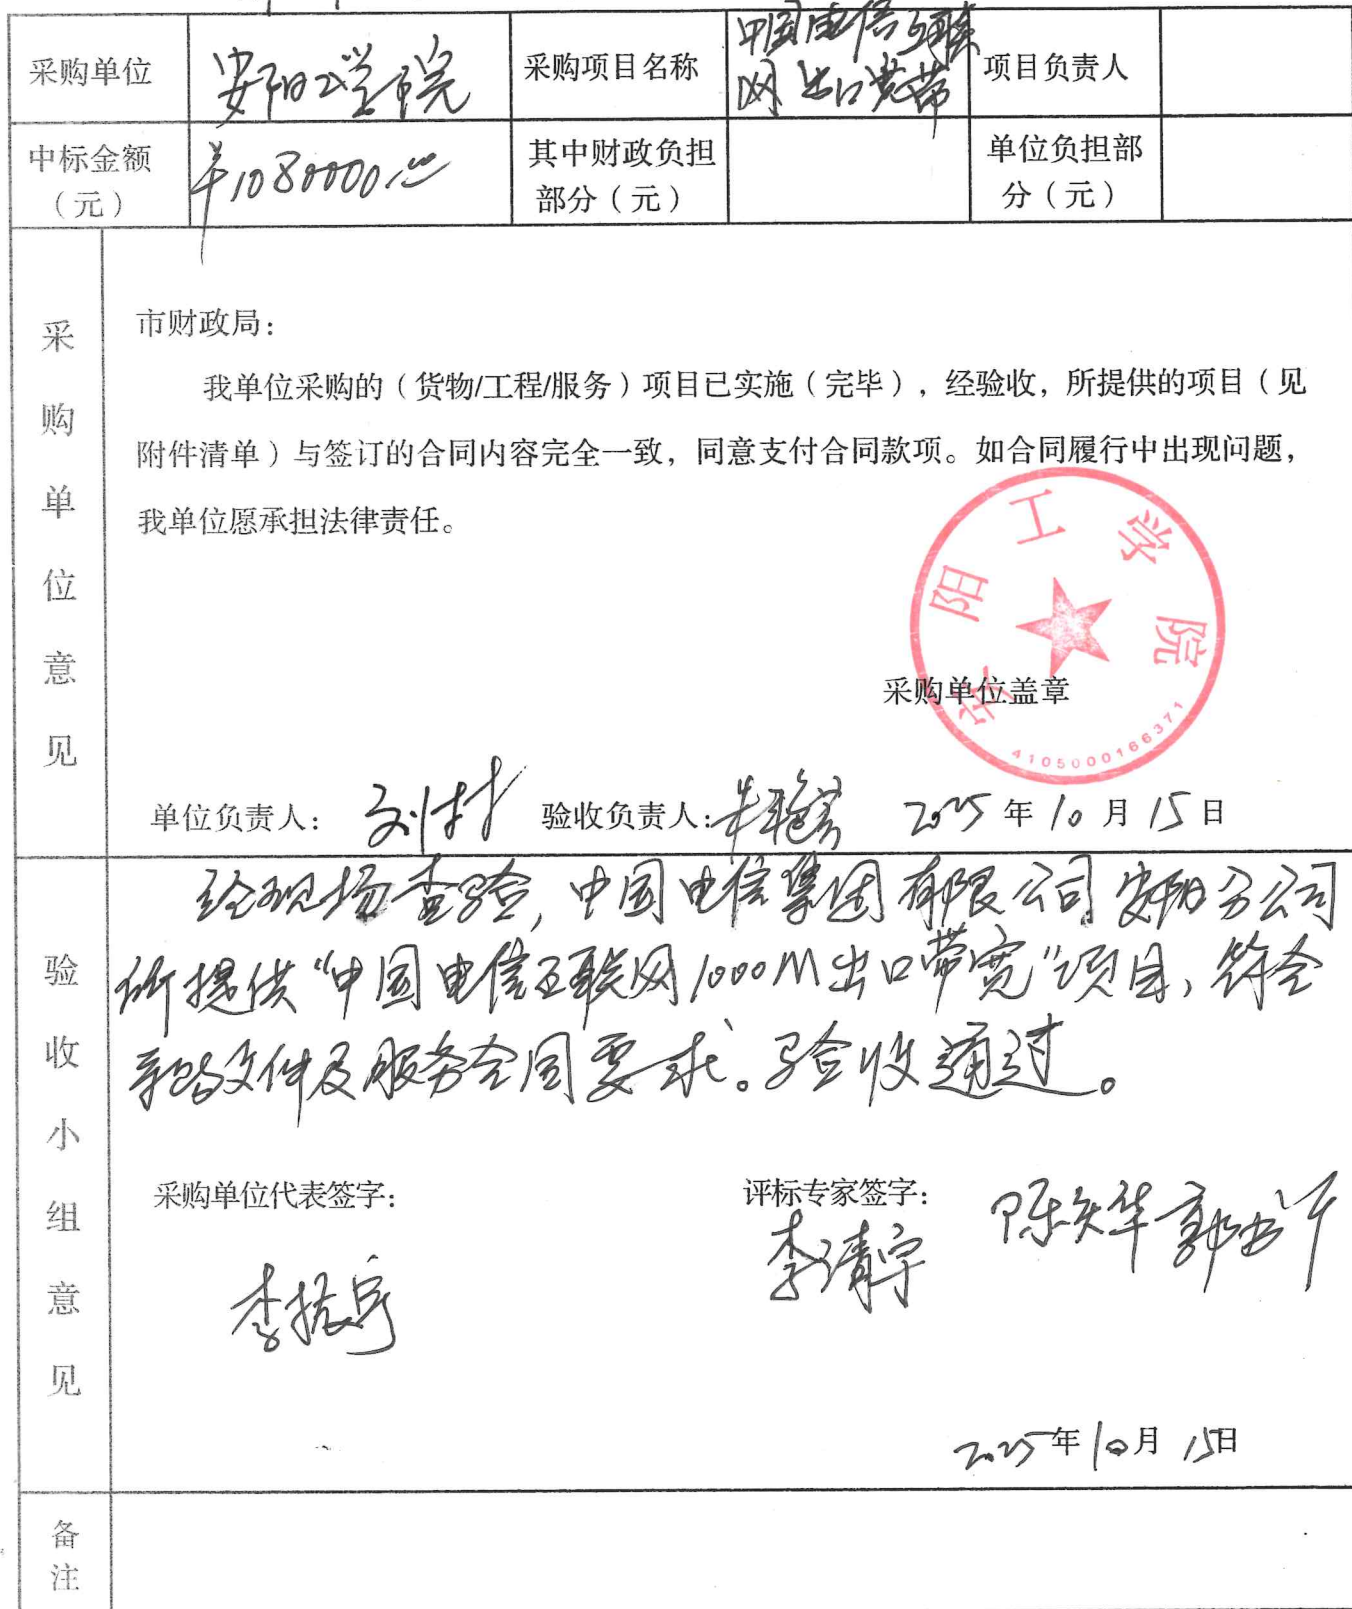 采购单位 安阳工学院 采购项目名称 中国电信互联网出口宽带 项目负责人
中标金额（元） ¥1080000.00 其中财政负担部分（元） 单位负担部分（元）
采购单位意见
市财政局：
我单位采购的（货物/工程/服务）项目已实施（完毕），经验收，所提供的项目（见
附件清单）与签订的合同内容完全一致，同意支付合同款项。如合同履行中出现问题，
我单位愿承担法律责任。
安阳工学院
41050000166371
采购单位盖章
单位负责人： 验收负责人： 2025年10月15日
验收小组意见
经现场查验，中国电信集团有限公司安阳分公司
所提供“中国电信互联网1000M出口带宽”项目，符合
文件及服务合同要求。验收通过。
采购单位代表签字： 评标专家签字：
李振宇 李清宇
2025年10月15日
备注